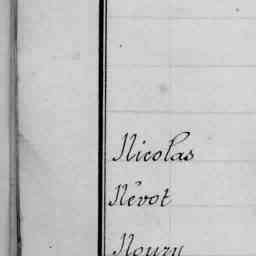 Nicolas
Névot
Noury